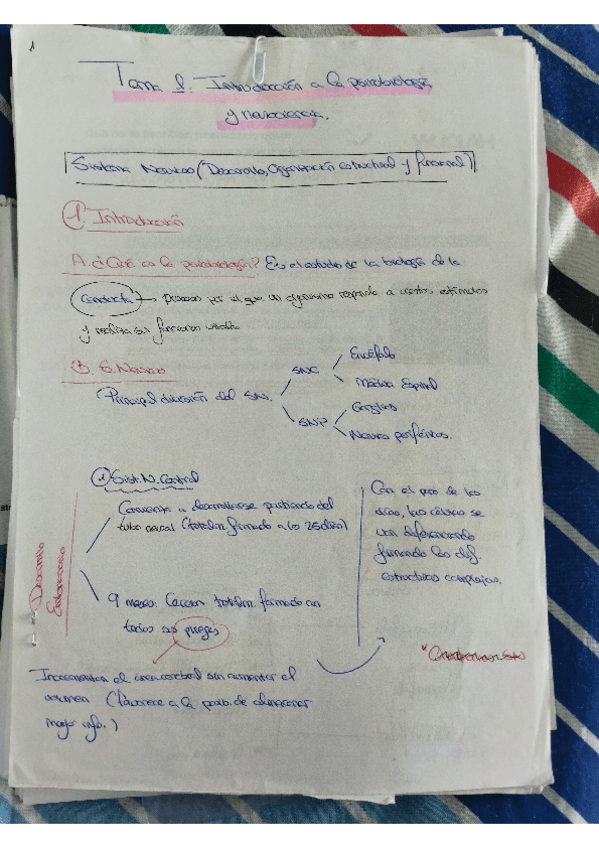 1
Tema 1: Introducción a la psicobiología
y neurociencia.
Sistema Nervioso (Desarrollo, Organización estructural y funcional)
1. Introducción
A. ¿Qué es la psicobiología? Es el estudio de la biología de la
conducta → Procesos por el que un organismo responde a ciertos estímulos
y realiza sus funciones vitales
B. S. Nervioso
Principal división del SN.
SNC
Encéfalo
Médula Espinal
SNP
Ganglios
Nervios periféricos.
1 Sist. N. Central
Desarrollo
Embrionario
Comienza a desarrollarse partiendo del
tubo neural (totalm. formado a los 25 días)
9 meses: Cerebro totalm. formado con
todos sus pliegues
Con el paso de los
días, las células se
van diferenciando
formando las dif.
estructuras complejas.
Incrementa el área cerebral sin aumentar el
volumen (favorece a la posib. de almacenar
mayor info.)